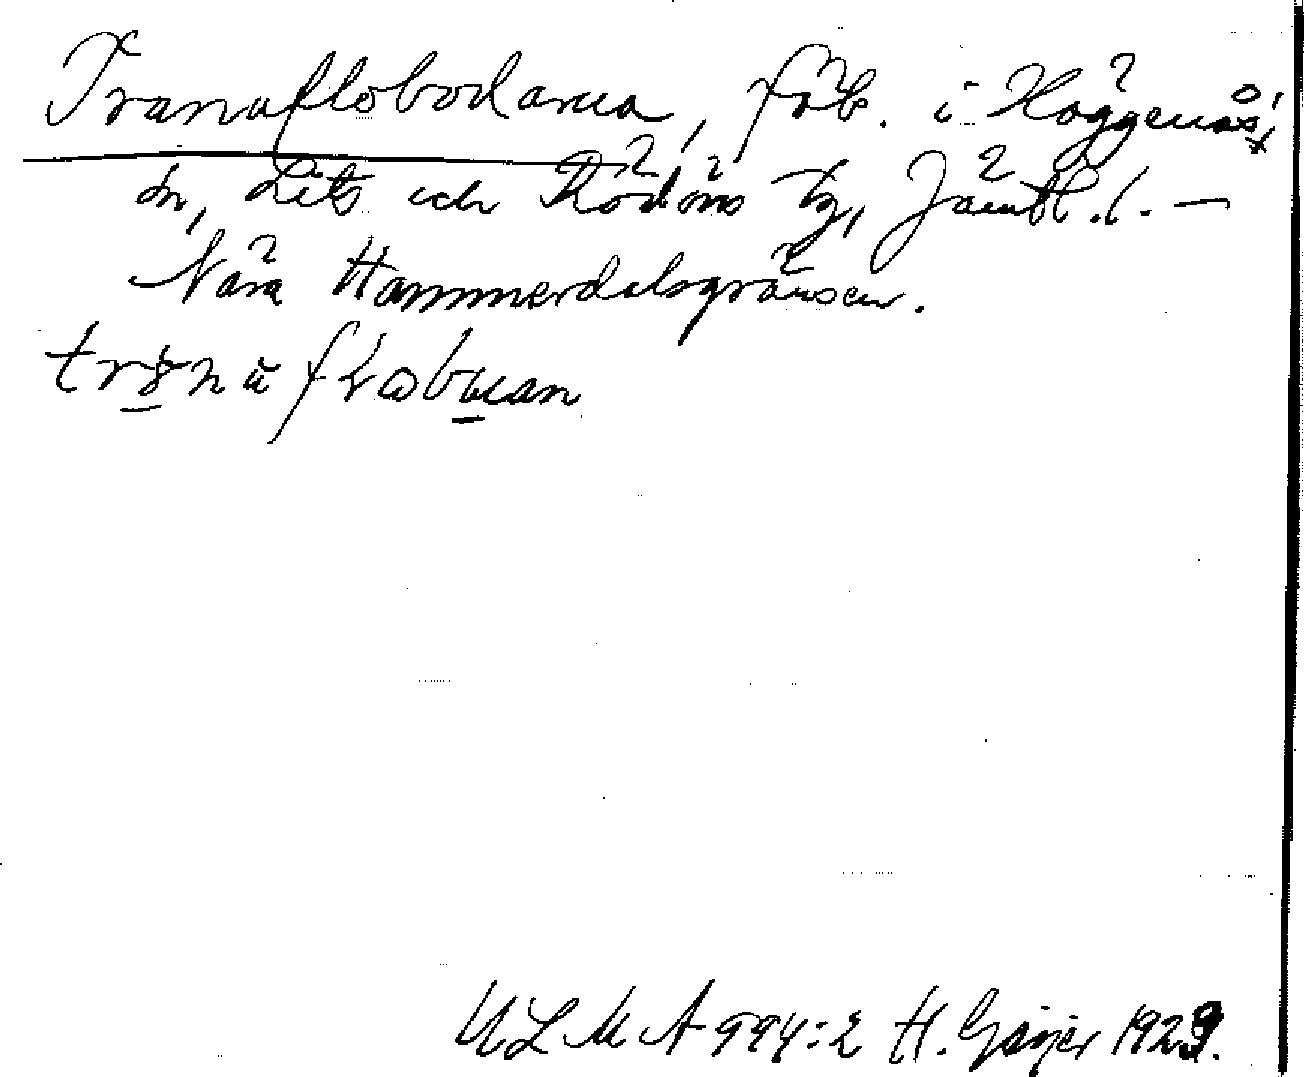 Tranaflobodarna, fäb. i Häggenås
sn, Lits och Rödöns tg, Jämtl. l. —
Nära Hammerdalsgränsen.
ULMA 994:2 H. Geijer 1929.